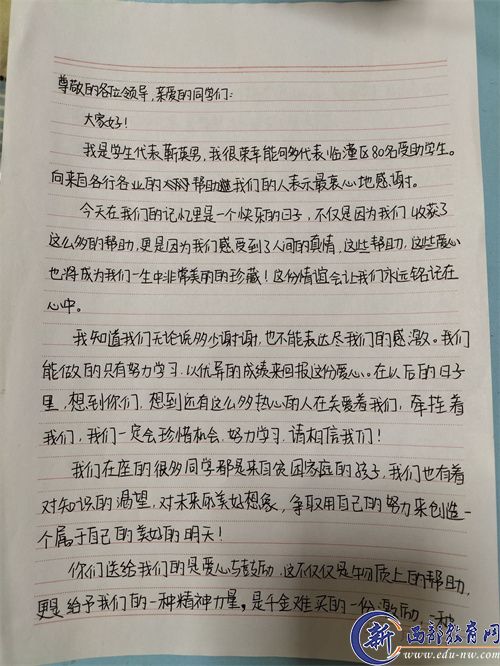 尊敬的各位领导,亲爱的同学们:
大家好!
我是学生代表靳英男,我很荣幸能够代表临潼区80名受助学生。
向来自各行各业的帮助我们的人表示最衷心地感谢。
今天在我们的记忆里是一个快乐的日子,不仅是因为我们收获了
这么多的帮助,更是因为我们感受到了人间的真情,这些帮助,这些爱心
也将成为我们一生中非常美丽的珍藏!这份情谊会让我们永远铭记在
心中。
我知道我们无论说多少谢谢,也不能表达尽我们的感激。我们
能做的只有努力学习,以优异的成绩来回报这份爱心。在以后的日子
里,想到你们,想到还有这么多热心的人在关爱着我们,牵挂着
我们,我们一定会珍惜机会,努力学习,请相信我们!
我们在座的很多同学都是来自贫困家庭的孩子,我们也有着
对知识的渴望,对未来的美好想象,争取用自己的努力来创造一
个属于自己的美好的明天!
你们送给我们的是爱心与鼓励,这不仅仅是物质上的帮助,
更是给予我们的一种精神力量,是千金难买的一份激励,一种
新 西部教育网
www.edu-nw.com